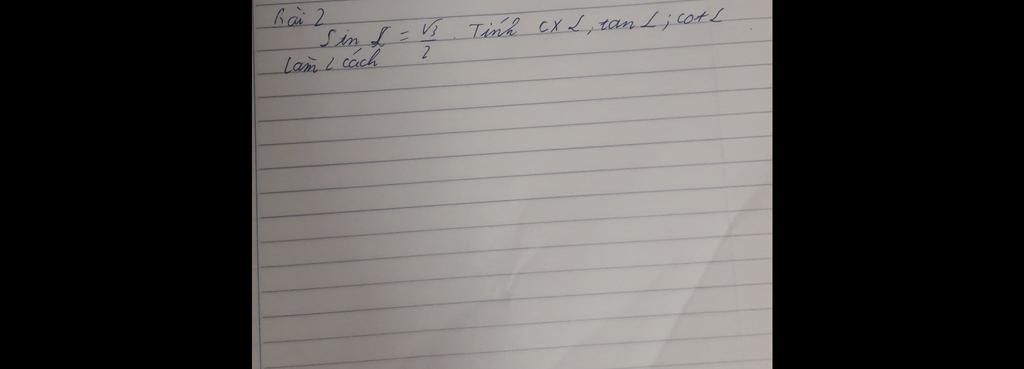 Bài 2
Sin α = √3/2. Tính cos α, tan α; cot α
Làm 2 cách